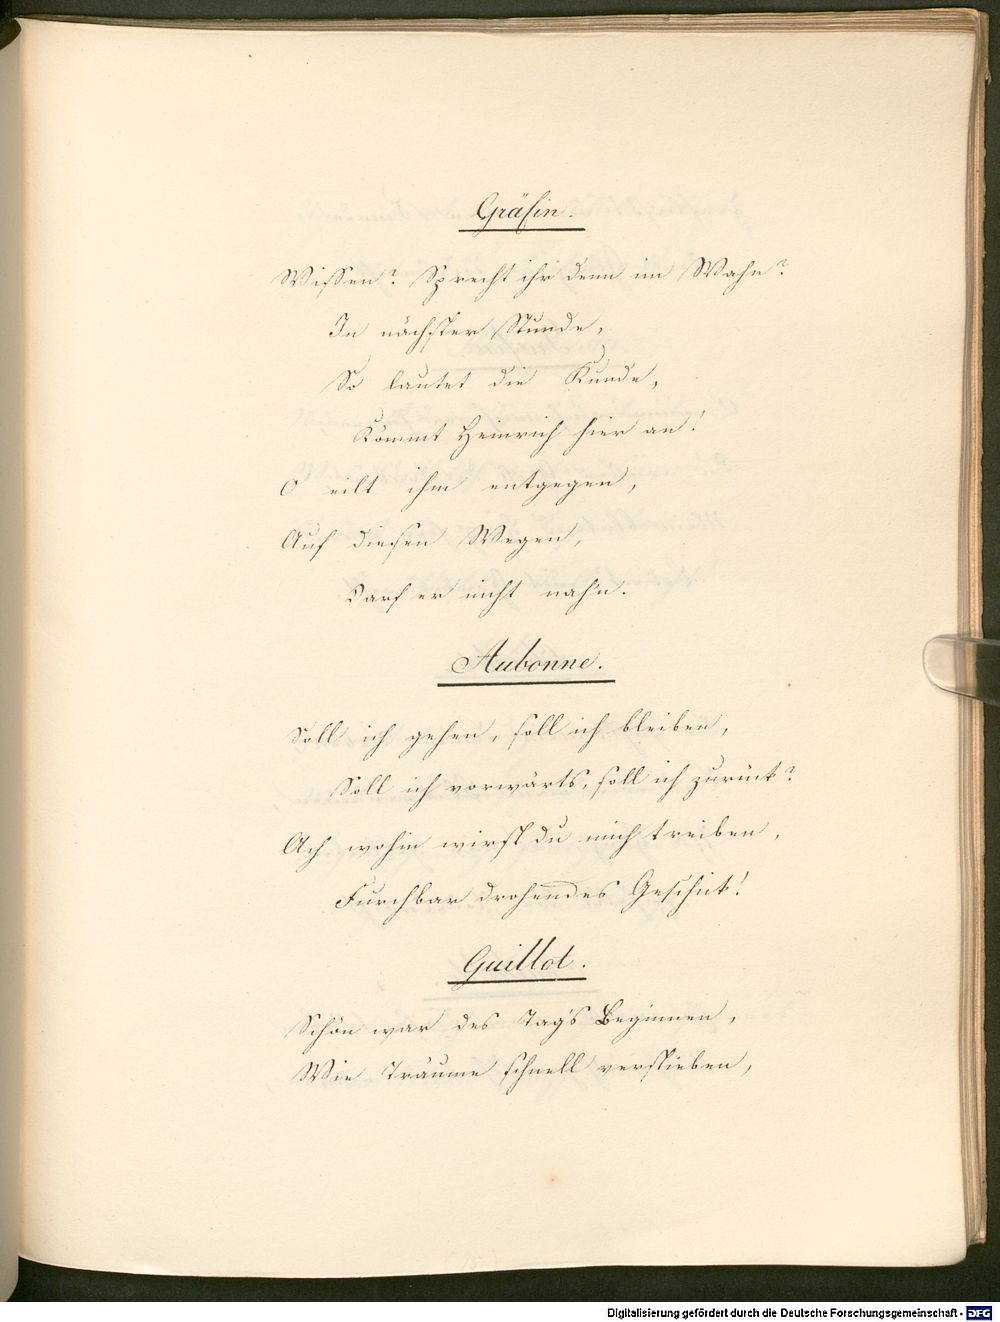 Gräfin.
Wissen? Sprecht ihr denn im Wahn?
In nächster Stunde,
So lautet die Kunde,
Kömmt Heinrich hier an!
O eilt ihm entgegen,
Auf diesen Wegen,
Darf er nicht nah'n.
Aubonne.
Soll ich gehen, soll ich bleiben,
Soll ich vorwärts, soll ich zurück?
Ach wohin wirst du mich treiben,
Furchbar drohendes Geschick!
Guillot.
Schön war des Tag's Beginnen,
Wie Träume schnell verstieben,
Digitalisierung gefördert durch die Deutsche Forschungsgemeinschaft - DFG